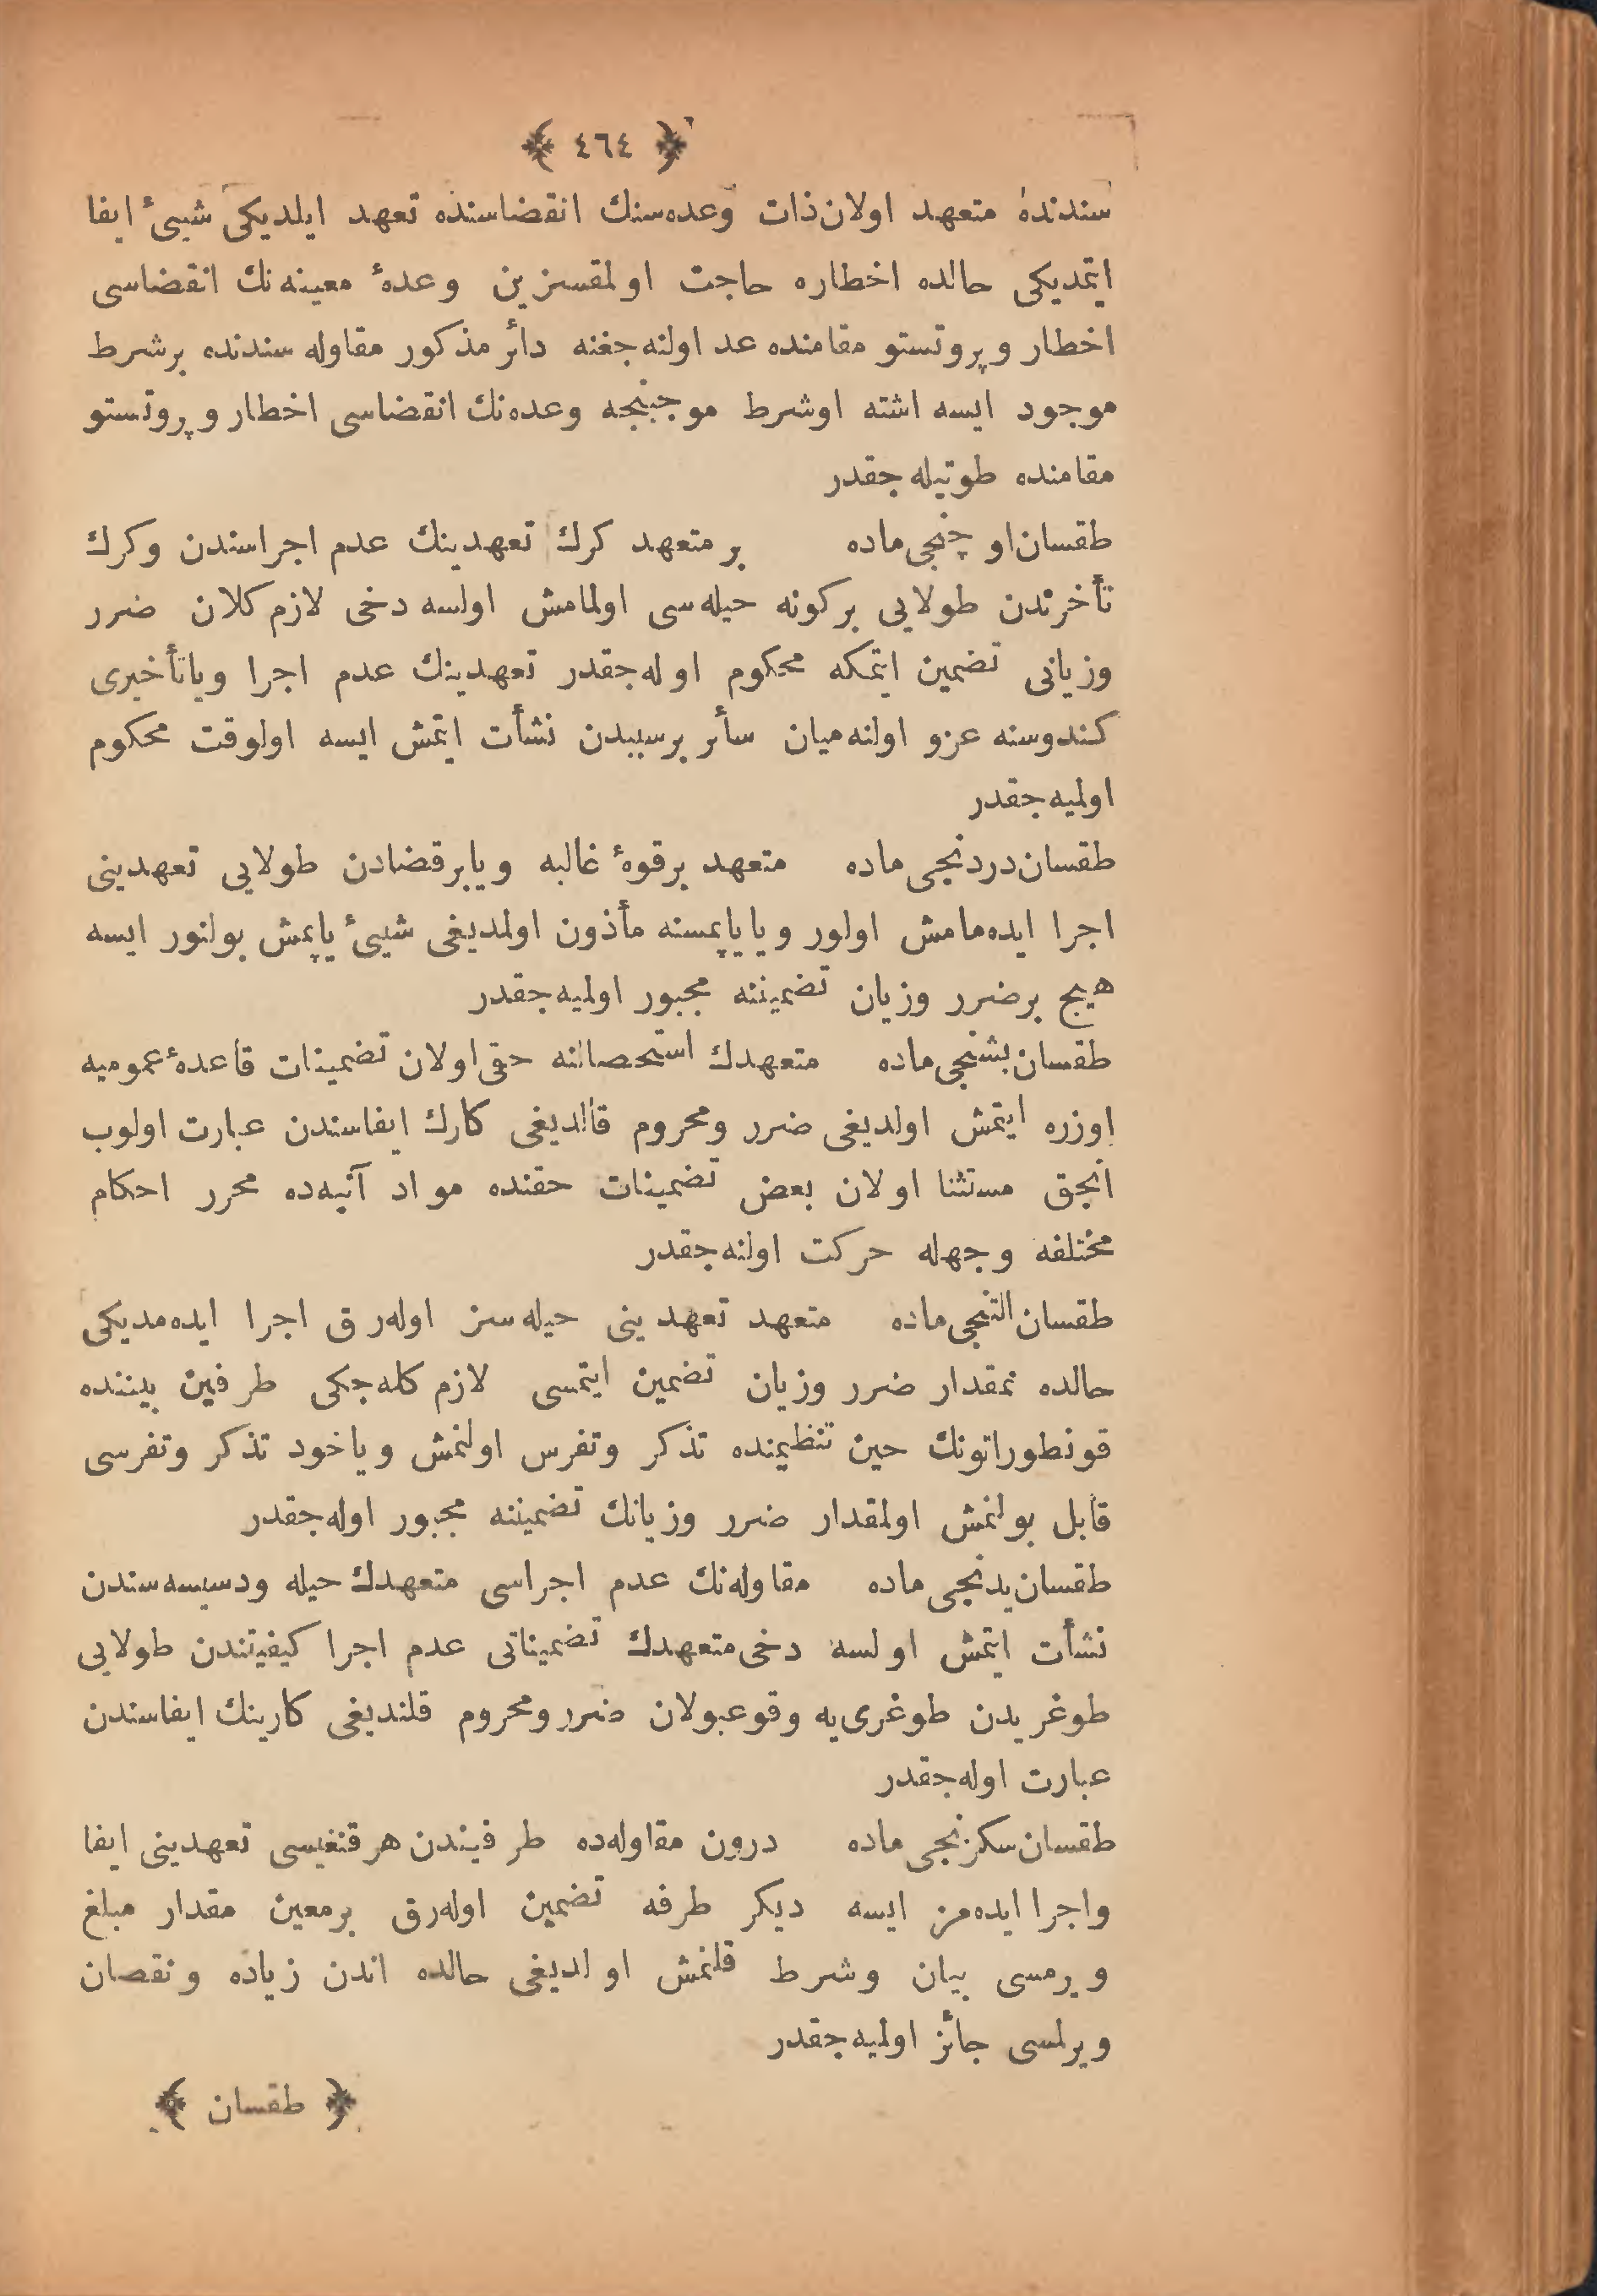 ﴿ ٤٦٤ ﴾
سندنده متعهد اولان ذات وعده‌سنك انقضاسنده تعهد ايلديكى شيئ ايفا
ايتمديكى حالده اخطاره حاجت اولمقسزين وعدهٔ معينه‌نك انقضاسى
اخطار وپروتستو مقامنده عد اولنه‌جغنه دائر مذكور مقاوله سندنده برشرط
موجود ايسه اشته اوشرط موجبنجه وعده‌نك انقضاسى اخطار وپروتستو
مقامنده طوتيله‌جقدر
طقسان اوچنجى ماده بر متعهد كرك تعهدينك عدم اجراسندن وكرك
تأخرندن طولايى بركونه حيله‌سى اولمامش اولسه دخى لازم كلان ضرر
وزيانى تضمين ايتمكه محكوم اوله‌جقدر تعهدينك عدم اجرا وياتأخيرى
كندوسنه عزو اولنه‌ميان سائر برسببدن نشأت ايتمش ايسه اولوقت محكوم
اوليه‌جقدر
طقسان دردنجى ماده متعهد برقوهٔ غالبه ويابرقضادن طولايى تعهدينى
اجرا ايده‌مامش اولور ويا ياپمسنه مأذون اولمديغى شيئ ياپمش بولنور ايسه
هيچ برضرر وزيان تضميننه مجبور اوليه‌جقدر
طقسان بشنجى ماده متعهدك استحصالنه حق اولان تضمينات قاعدهٔ عموميه
اوزره ايتمش اولديغى ضرر ومحروم قالديغى كارك ايفاسندن عبارت اولوب
انجق مستثنا اولان بعض تضمينات حقنده مواد آتيه‌ده محرر احكام
مختلفه وجهله حركت اولنه‌جقدر
طقسان التنجى ماده متعهد تعهدينى حيله‌سز اوله‌رق اجرا ايده‌مديكى
حالده نمقدار ضرر وزيان تضمين ايتمسى لازم كله‌جكى طرفين بيننده
قونطوراتونك حين تنظيمنده تذكر وتفرس اولنمش وياخود تذكر وتفرسى
قابل بولنمش اولمقدار ضرر وزيانك تضميننه مجبور اوله‌جقدر
طقسان يدنجى ماده مقاوله‌نك عدم اجراسى متعهدك حيله ودسيسه‌سندن
نشأت ايتمش اولسه دخى متعهدك تضميناتى عدم اجرا كيفيتندن طولايى
طوغريدن طوغرى‌يه وقوعبولان ضرر ومحروم قلنديغى كارينك ايفاسندن
عبارت اوله‌جقدر
طقسان سكزنجى ماده درون مقاوله‌ده طرفيندن هرقنغيسى تعهدينى ايفا
واجرا ايده‌مز ايسه ديكر طرفه تضمين اوله‌رق برمعين مقدار مبلغ
ويرمسى بيان وشرط قلنمش اولديغى حالده اندن زياده ونقصان
ويرلمسى جائز اوليه‌جقدر
﴿ طقسان ﴾